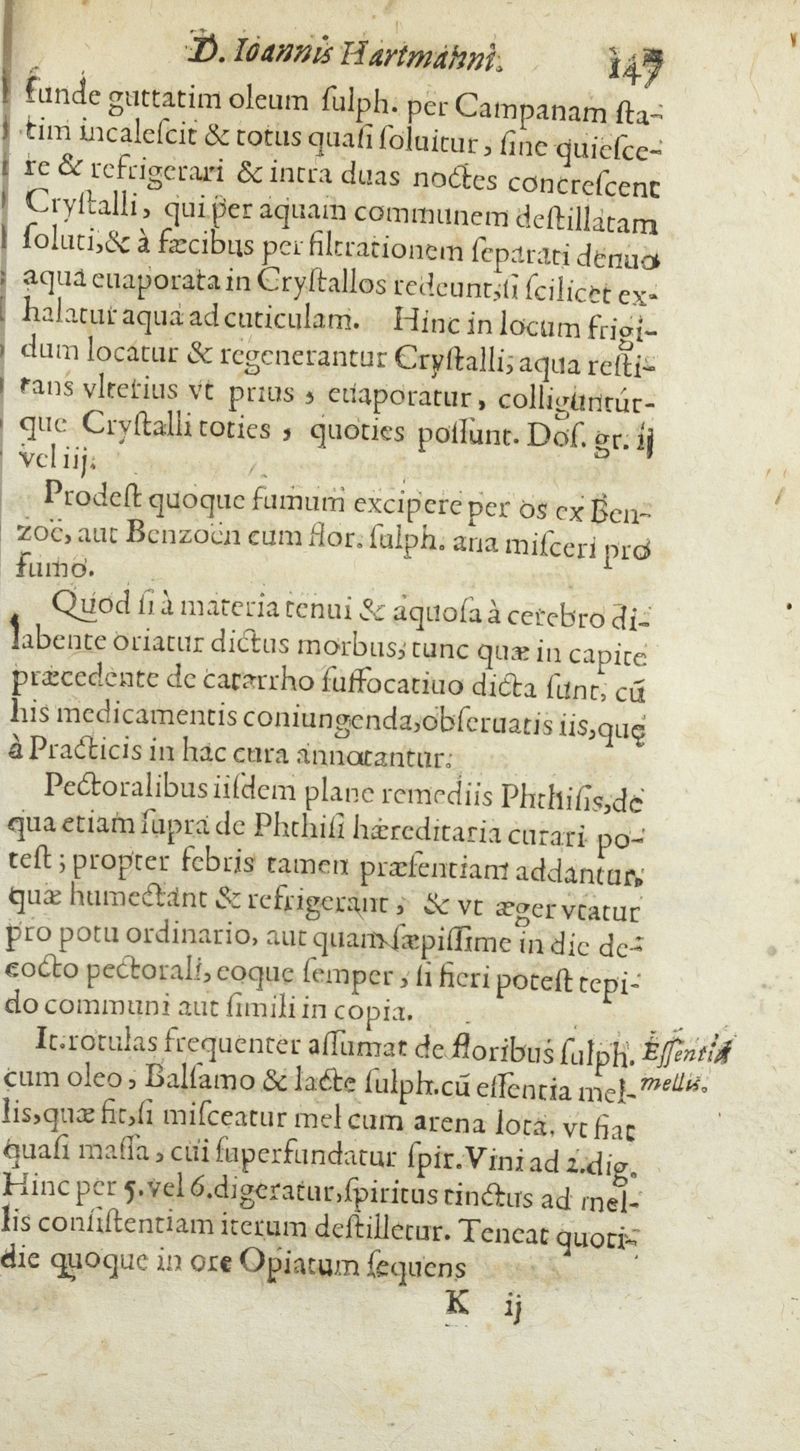 D. Ioannis Hartmanni. 147
funde guttatim oleum ſulph. per Campanam ſta-
tim incaleſcit & totus quaſi ſoluitur, ſine quieſce-
re & refrigerari & intra duas noctes concreſcent
Cryſtalli, qui per aquam communem deſtillatam
ſoluti,& à fæcibus per filtrationem ſeparati denuo
aqua euaporata in Cryſtallos redeunt,ſi ſcilicet ex-
halatur aqua ad cuticulam. Hinc in locum frigi-
dum locatur & regenerantur Cryſtalli; aqua reſti-
tans vlterius vt prius, euaporatur, colliguntúr-
que Cryſtalli toties, quoties poſſunt. Doſ. gr. ij
vel iij.
Prodeſt quoque fumum excipere per os ex Ben-
zoë, aut Benzoën cum flor. ſulph. ana miſceri pro
fumo.
Quod ſi à materia tenui & aquoſa à cerebro di-
labente oriatur dictus morbus; tunc quæ in capite
præcedente de catarrho ſuffocatiuo dicta ſunt, cū
his medicamentis coniungenda,obſeruatis iis,quę
à Practicis in hac cura annotantur.
Pectoralibus iiſdem plane remediis Phthiſis,de
qua etiam ſupra de Phthiſi hæreditaria curari po-
teſt; propter febris tamen præſentiam addantur,
quæ humectant & refrigerant, & vt æger vtatur
pro potu ordinario, aut quam ſæpiſſime in die de-
cocto pectorali, eoque ſemper, ſi fieri poteſt tepi-
do communi aut ſimili in copia.
It.rotulas frequenter aſſumat de floribus ſulph. Eſſentia
cum oleo, Balſamo & lacte ſulph.cū eſſentia mel- mellis.
lis,quæ fit,ſi miſceatur mel cum arena lota, vt fiat
quaſi maſſa, cui ſuperfundatur ſpir.Vini ad 2.dig.
Hinc per 5.vel 6.digeratur,ſpiritus tinctus ad mel-
lis conſiſtentiam iterum deſtilletur. Teneat quoti-
die quoque in ore Opiatum ſequens
K ij